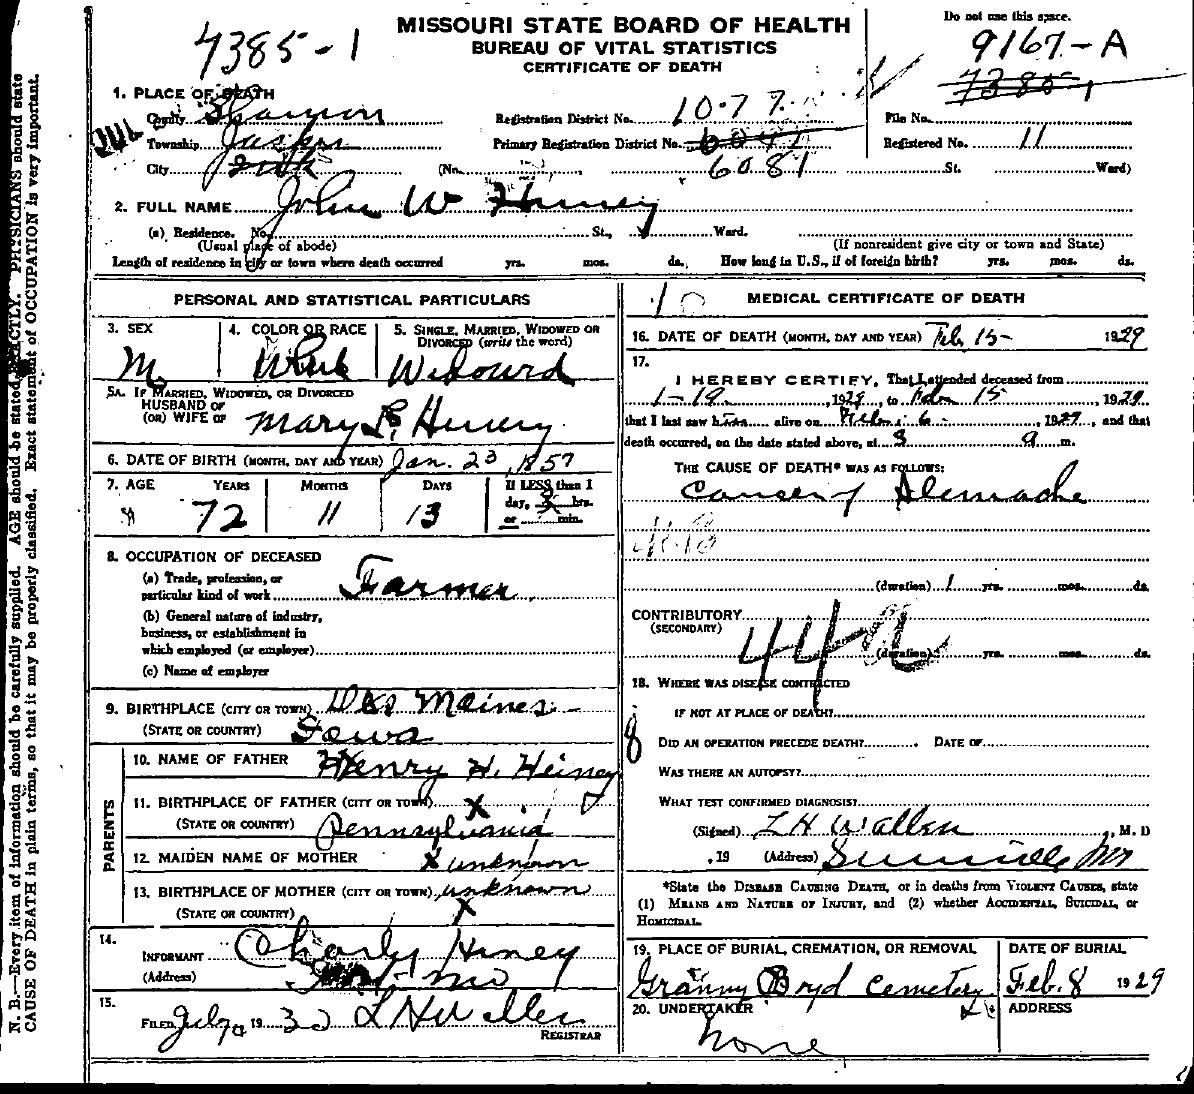 MISSOURI STATE BOARD OF HEALTH
BUREAU OF VITAL STATISTICS
CERTIFICATE OF DEATH
Do not use this space.
7385-1
9167-A
7385-1
1. PLACE OF DEATH
County Shannon
Registration District No. 1077
File No.
Township Jasper
Primary Registration District No. 6047
Registered No. 11
City
(No.
6081
St.
Ward)
2. FULL NAME John W Hiney
(a) Residence. No.
St.,
Ward.
(Usual place of abode)
(If nonresident give city or town and State)
Length of residence in city or town where death occurred yrs. mos. ds.
How long in U.S., if of foreign birth? yrs. mos. ds.
PERSONAL AND STATISTICAL PARTICULARS
3. SEX
M
4. COLOR OR RACE
White
5. SINGLE, MARRIED, WIDOWED OR
DIVORCED (write the word)
Widowed
5A. IF MARRIED, WIDOWED, OR DIVORCED
HUSBAND OF
(OR) WIFE OF Mary Hiney
6. DATE OF BIRTH (MONTH, DAY AND YEAR) Jan. 23, 1857
7. AGE
YEARS
72
MONTHS
11
DAYS
13
If LESS than 1
day, hrs.
or min.
8. OCCUPATION OF DECEASED
(a) Trade, profession, or
particular kind of work Farmer
(b) General nature of industry,
business, or establishment in
which employed (or employer)
(c) Name of employer
9. BIRTHPLACE (CITY OR TOWN) Des Moines
(STATE OR COUNTRY) Iowa
PARENTS
10. NAME OF FATHER Henry H. Heiney
11. BIRTHPLACE OF FATHER (CITY OR TOWN) X
(STATE OR COUNTRY) Pennsylvania
12. MAIDEN NAME OF MOTHER X unknown
13. BIRTHPLACE OF MOTHER (CITY OR TOWN) unknown
(STATE OR COUNTRY) X
14.
INFORMANT Charly Hiney
(Address) Mo
15.
FILED July 19 30 L H Wallen
REGISTRAR
MEDICAL CERTIFICATE OF DEATH
10
16. DATE OF DEATH (MONTH, DAY AND YEAR) Feb 15- 1929
17.
I HEREBY CERTIFY, That I attended deceased from
1-19, 1929, to Feb 15, 1929
that I last saw him alive on Feb. 6, 1929, and that
death occurred, on the date stated above, at 8 a m.
THE CAUSE OF DEATH* WAS AS FOLLOWS:
Cancer of
(duration) 1 yrs. mos. ds.
CONTRIBUTORY
(SECONDARY)
44a
(duration) yrs. mos. ds.
18. WHERE WAS DISEASE CONTRACTED
IF NOT AT PLACE OF DEATH?
8
DID AN OPERATION PRECEDE DEATH? DATE OF
WAS THERE AN AUTOPSY?
WHAT TEST CONFIRMED DIAGNOSIS?
(Signed) L H Wallen, M. D
, 19 (Address) Mo
*State the DISEASE CAUSING DEATH, or in deaths from VIOLENT CAUSES, state
(1) MEANS AND NATURE OF INJURY, and (2) whether ACCIDENTAL, SUICIDAL, or
HOMICIDAL.
19. PLACE OF BURIAL, CREMATION, OR REMOVAL
Granny Boyd Cemetery
DATE OF BURIAL
Feb. 8 1929
20. UNDERTAKER
None
ADDRESS
N. B.—Every item of information should be carefully supplied. AGE should be stated EXACTLY. PHYSICIANS should state
CAUSE OF DEATH in plain terms, so that it may be properly classified. Exact statement of OCCUPATION is very important.